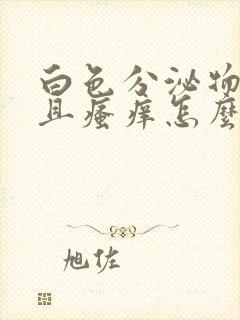 白色分泌物
且瘙痒怎麼
旭佐